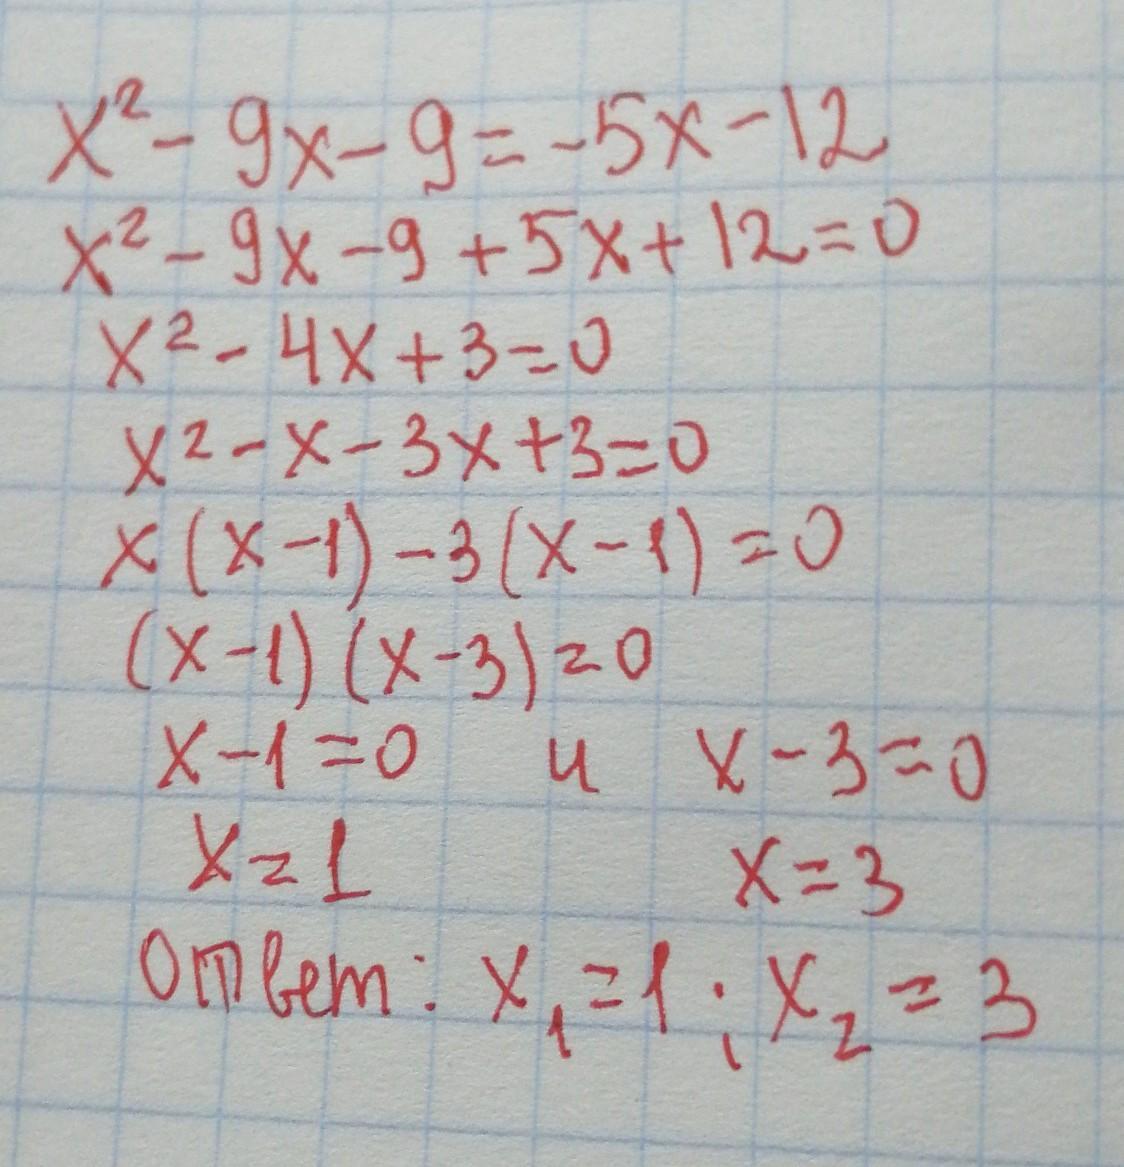 x² - 9x - 9 = -5x - 12
x² - 9x - 9 + 5x + 12 = 0
x² - 4x + 3 = 0
x² - x - 3x + 3 = 0
x(x - 1) - 3(x - 1) = 0
(x - 1)(x - 3) = 0
x - 1 = 0 и x - 3 = 0
x = 1 x = 3
Ответ: x₁ = 1; x₂ = 3